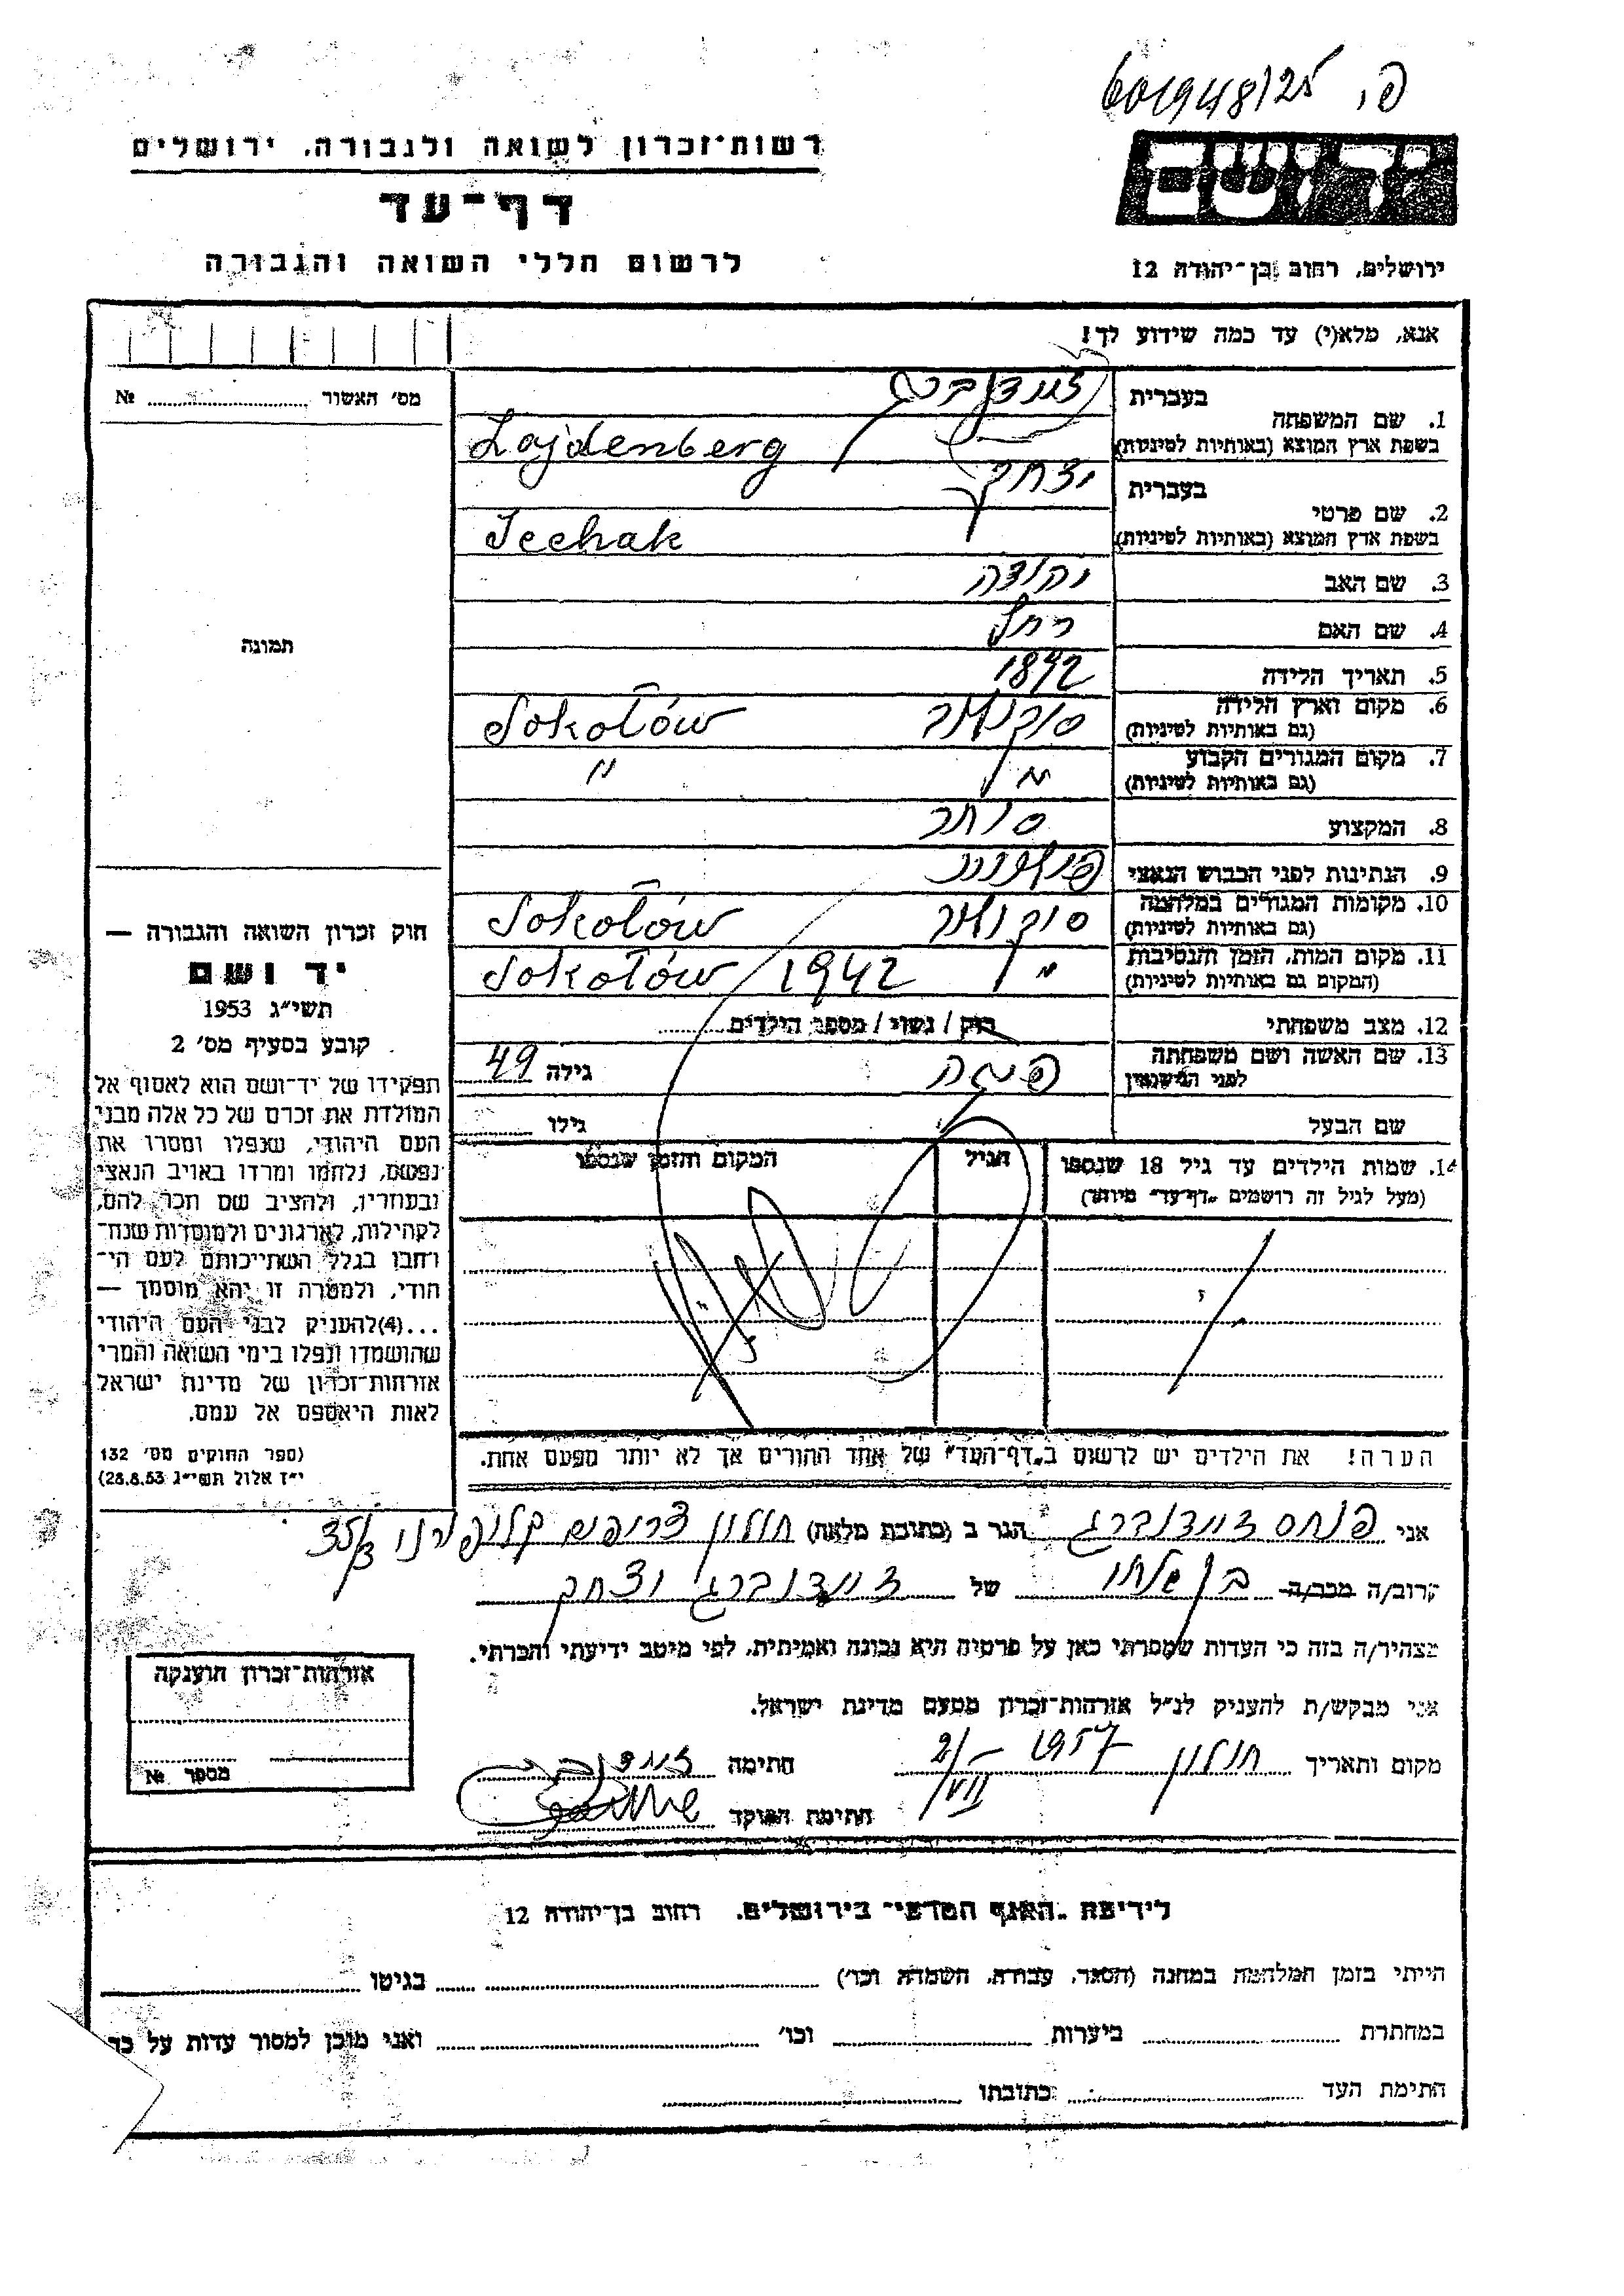 פ. 601948/25
יד ושם
רשות־זכרון לשואה ולגבורה, ירושלים
דף־עד
לרשום חללי השואה והגבורה
ירושלים, רחוב בן־יהודה 12
אנא, מלא(י) עד כמה שידוע לך!
מס' האשור № 
תמונה
1. שם המשפחה
בעברית זיידנברג
בשפת ארץ המוצא (באותיות לטיניות) Zajdenberg
2. שם פרטי
בעברית יצחק
בשפת ארץ המוצא (באותיות לטיניות) Icchak
3. שם האב יהודה
4. שם האם רחל
5. תאריך הלידה 1892
6. מקום וארץ הלידה סוקולוב Sokołów
(גם באותיות לטיניות)
7. מקום המגורים הקבוע " "
(גם באותיות לטיניות)
8. המקצוע סוחר
9. הנתינות לפני הכבוש הנאצי פולנית
10. מקומות המגורים במלחמה סוקולוב Sokołów
(גם באותיות לטיניות)
11. מקום המות, הזמן והנסיבות Sokołów 1942
(המקום גם באותיות לטיניות)
12. מצב משפחתי רוק / נשוי / מספר הילדים
13. שם האשה ושם משפחתה גילה 49
לפני הנישואין
שם הבעל גילו
14. שמות הילדים עד גיל 18 שנספו הגיל המקום והזמן שנספו
(מעל לגיל זה רושמים "דף־עד" מיוחד)
הערה! את הילדים יש לרשום ב"דף־העד" של אחד ההורים אך לא יותר מפעם אחת.
חוק זכרון השואה והגבורה —
יד ושם
תשי"ג 1953
קובע בסעיף מס' 2
תפקידו של יד־ושם הוא לאסוף אל
המולדת את זכרם של כל אלה מבני
העם היהודי, שנפלו ומסרו את
נפשם, נלחמו ומרדו באויב הנאצי
ובעוזריו, ולהציב שם וזכר להם,
לקהילות, לארגונים ולמוסדות שנח־
רבו בגלל השתייכותם לעם הי־
הודי, ולמטרה זו יהא מוסמך —
...(4)להעניק לבני העם היהודי
שהושמדו ונפלו בימי השואה והמרי
אזרחות־זכרון של מדינת ישראל
לאות היאספם אל עמם.
(ספר החוקים מס' 132
י"ז אלול תשי"ג 28.8.53)
אני פנחס זיידנברג הגר ב (כתובת מלאה) חולון צריפים
קרוב/ה מכר/ה בן אחיו של זיידנברג יצחק
מצהיר/ה בזה כי העדות שמסרתי כאן על פרטיה היא נכונה ואמיתית, לפי מיטב ידיעתי והכרתי.
אני מבקש/ת להעניק לנ"ל אזרחות־זכרון מטעם מדינת ישראל.
מקום ותאריך חולון 2/VII – 1957 חתימה
חתימת הפוקד
אזרחות־זכרון הוענקה
מספר №
לידיעת "האגף המדעי" בירושלים, רחוב בן־יהודה 12
הייתי בזמן המלחמה במחנה (הסגר, עבודה, השמדה וכו') בגיטו
במחתרת ביערות וכו' ואני מוכן למסור עדות על כך
חתימת העד כתובתו